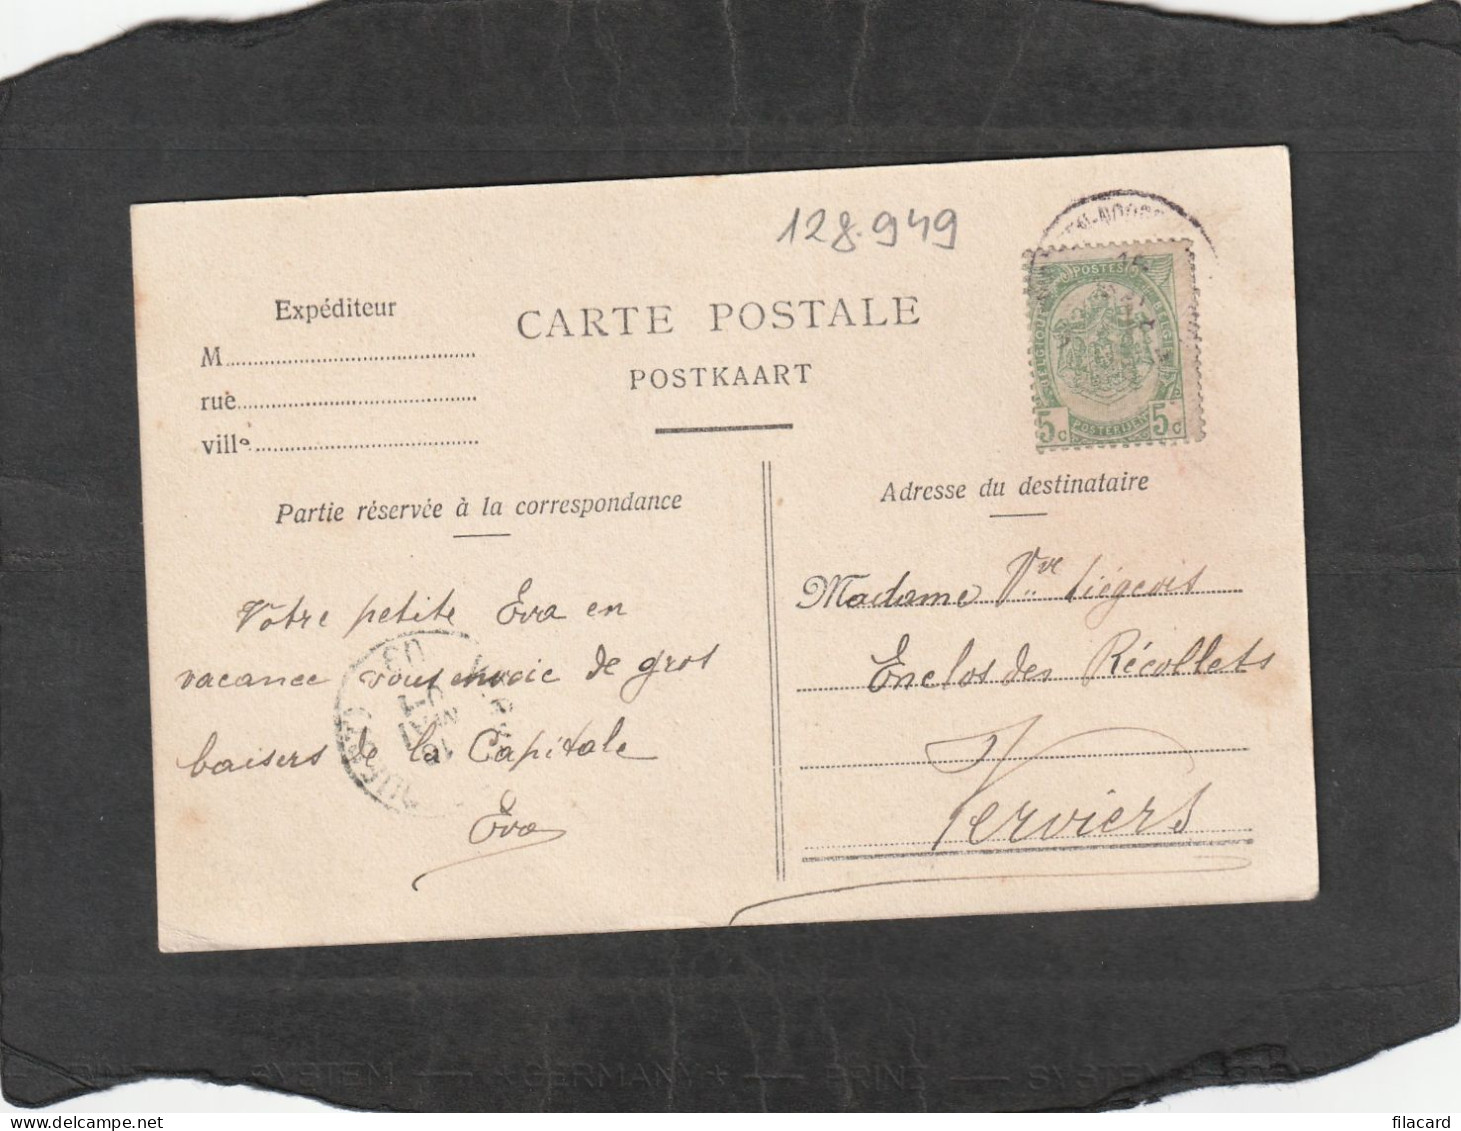 128.949
Expéditeur
M
rue
ville
CARTE POSTALE
POSTKAART
POSTES
BELGIQUE
BELGIE
5c
POSTERIJEN
5c
Partie réservée à la correspondance
Adresse du destinataire
Votre petite Eva en
vacance vous envoie de gros
baisers de la Capitale
Eva
Madame Vve Liégeois
Enclos des Récollets
Verviers
SYSTEM — *GERMANY* — PRINZ — SYSTEM
filacard